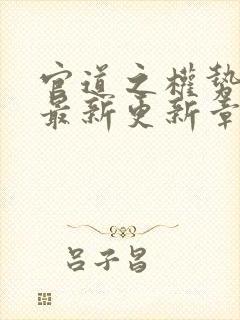 官道之權勢
最新更新章
吕子昌